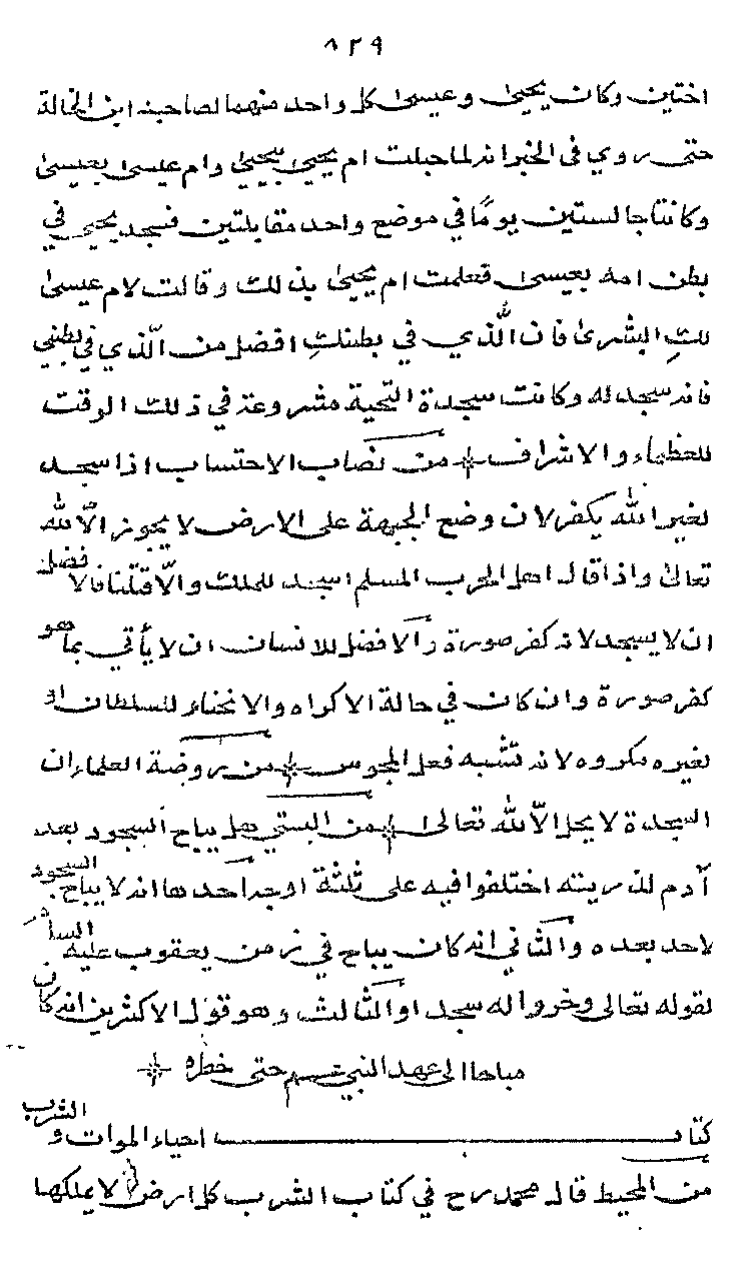 ٨٢٩
اختين وكان يحيى وعيسى كل واحد منهما لصاحبه ابن الخالة
حتى روي في الخبر انه لما حبلت ام يحيى بيحيى وام عيسى بعيسى
وكانتا جالستين يومًا في موضع واحد مقابلتين فسجد يحيى في
بطن امه بعيسى فعلمت ام يحيى بذلك وقالت لام عيسى
لكِ البشرى فان الّذي في بطنكِ افضل من الّذي في بطني
فانه سجد له وكانت سجدة التحية مشروعة في ذلك الوقت
للعظماء والاشراف من نصاب الاحتساب اذا سجد
لغير الله يكفر لان وضع الجبهة على الارض لا يجوز الّا لله
تعالى واذا قال اهل الحرب المسلم اسجد للملك والّا قتلناك فالافضل
ان لا يسجد لانه كفر صورة والافضل للانسان ان لا يأتي بما هو
كفر صورة وان كان في حالة الاكراه والانحناء للسلطان او
لغيره مكروه لانه تشبه فعل المجوس من روضة العلماء ان
السجدة لا يحل الّا لله تعالى من البستي هل يباح السجود بعد
آدم لذريته اختلفوا فيه على ثلثة اوجه احدها انه لا يباح السجود
لاحد بعده والثاني انه كان يباح في زمن يعقوب عليه السلام
لقوله تعالى وخروا له سجدا والثالث وهو قول الاكثرين انه كان
مباحا الى عهد النبي عسم حتى حظره
كتاب احياء الموات والشرب
من المحيط قال محمد رح في كتاب الشرب كل ارض لا يملكها